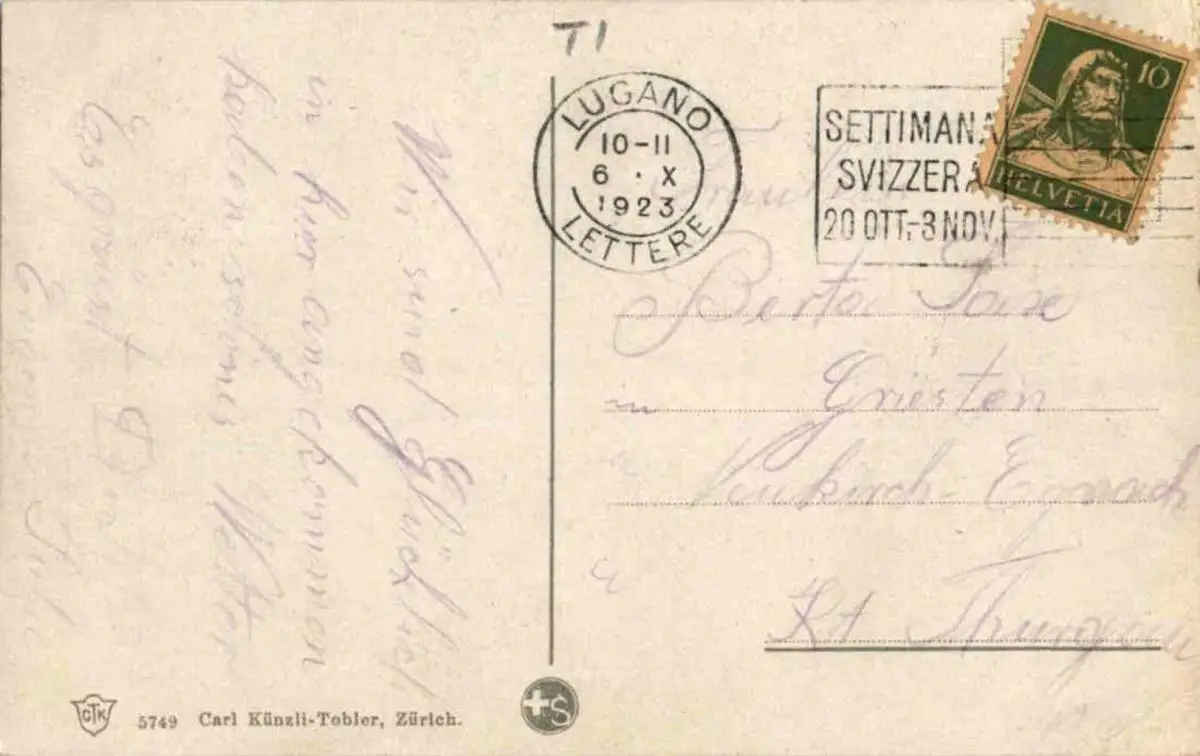 TI
LUGANO
10-11
6 · X
1923
LETTERE
SETTIMANA
SVIZZERA
20 OTT.-3 NOV.
10
HELVETIA
Wir sind Glücklich
in hier angekommen
haben schönes Wetter
Es grüsst
Fräulein
Berta
in Griesten
Neukirch-Egnach
Kt Thurgau
CTK
5749 Carl Künzli-Tobler, Zürich.
S